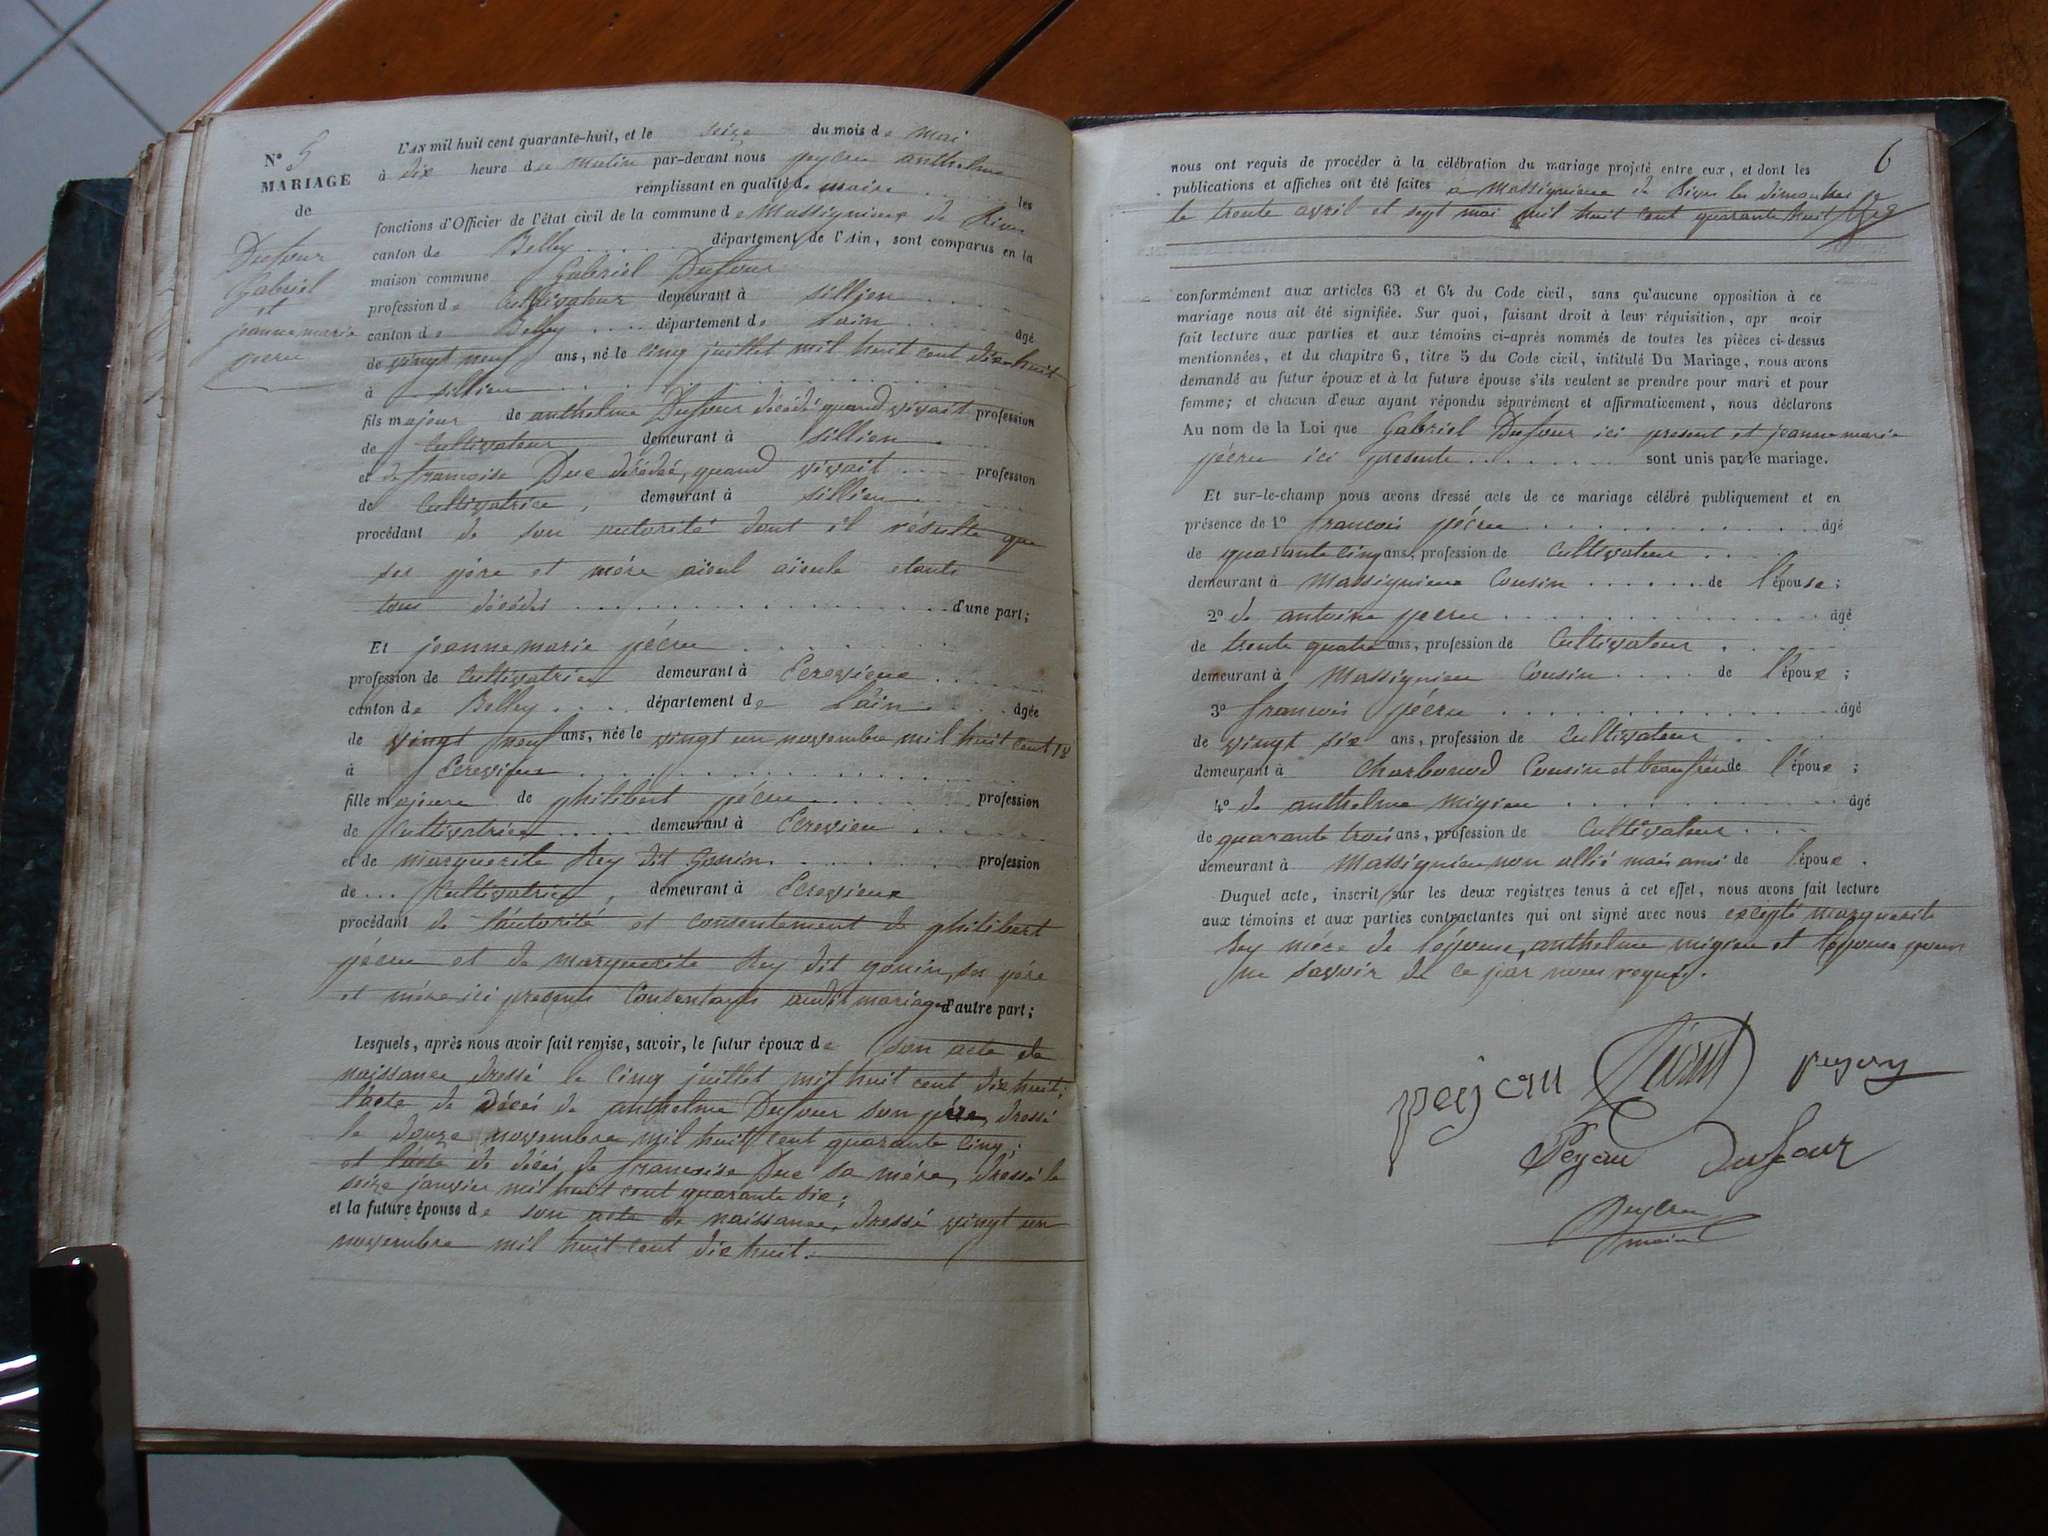 N° 5
MARIAGE
de
Dufour
Gabriel
et
jeanne marie
pécru
L'AN mil huit cent quarante-huit, et le seize du mois de mai
à dix heure du matin par-devant nous peycru anthelme
remplissant en qualité de maire les
fonctions d'Officier de l'état civil de la commune de Massignieux de Rives
canton de Belley département de l'Ain, sont comparus en la
maison commune Gabriel Dufour
profession de Cultivateur demeurant à Sillien
canton de Belley département de Lain âgé
de vingt neuf ans, né le cinq juillet mil huit cent dix huit
à Sillien
fils majeur de anthelme Dufour décédé quand vivait profession
de Cultivateur demeurant à Sillien
et de francoise Duc décédée, quand vivait profession
de Cultivatrice, demeurant à Sillien
procédant de son autorité dont il résulte que
ses père et mére aieul aieule etants
tous décédés d'une part;
Et jeanne marie pécru
profession de Cultivatrice demeurant à Cerevieux
canton de Belley département de Lain âgée
de vingt neuf ans, née le vingt un novembre mil huit cent 18
à Cerevieux
fille majeure de philibert pécru profession
de Cultivatrice demeurant à Cerevieu
et de marguerite Rey dit Gonin profession
de Cultivatrice, demeurant à Cerevieux
procédant de l'autorité et consentement de philibert
pécru et de marguerite Rey dit gonin, ses pére
et mére ici presents Consentants audit mariage d'autre part;
Lesquels, après nous avoir fait remise, savoir, le futur époux de son acte de
naissance dressé le cinq juillet mil huit cent dix huit;
l'acte de décés de anthelme Dufour son père, dressé
le douze novembre mil huit cent quarante cinq;
et l'acte de décés de francoise Duc sa mére, dressé le
seize janvier mil huit cent quarante six;
et la future épouse de son acte de naissance, dressé vingt un
novembre mil huit cent dix huit.
6
nous ont requis de procéder à la célébration du mariage projeté entre eux, et dont les
publications et affiches ont été faites a Massignieux de Rives les dimanches
le trente avril et sept mai mil huit cent quarante huit
conformément aux articles 63 et 64 du Code civil, sans qu'aucune opposition à ce
mariage nous ait été signifiée. Sur quoi, faisant droit à leur réquisition, apr avoir
fait lecture aux parties et aux témoins ci-après nommés de toutes les pièces ci-dessus
mentionnées, et du chapitre 6, titre 5 du Code civil, intitulé Du Mariage, nous avons
demandé au futur époux et à la future épouse s'ils veulent se prendre pour mari et pour
femme; et chacun d'eux ayant répondu séparément et affirmativement, nous déclarons
Au nom de la Loi que Gabriel Dufour ici present et jeanne marie
pécru ici presente sont unis par le mariage.
Et sur-le-champ nous avons dressé acte de ce mariage célébré publiquement et en
présence de 1° francois pécru âgé
de quarante cinq ans, profession de Cultivateur
demeurant à Massignieux Cousin de l'épouse;
2° de antoine pecru âgé
de trente quatre ans, profession de Cultivateur
demeurant à Massignieu Cousin de l'épouse;
3° francois pécru âgé
de vingt six ans, profession de Cultivateur
demeurant à Charbonod Cousin et beaufrére de l'épouse;
4° de anthelme migieu âgé
de quarante trois ans, profession de Cultivateur
demeurant à Massignieu non allié mais ami de l'épouse.
Duquel acte, inscrit sur les deux registres tenus à cet effet, nous avons fait lecture
aux témoins et aux parties contractantes qui ont signé avec nous excepté marguerite
Rey mére de l'épouse, anthelme migieu et l'épouse pour
ne savoir de ce par nous requis.
peycru
Peycru Dufour
Peycru
maire